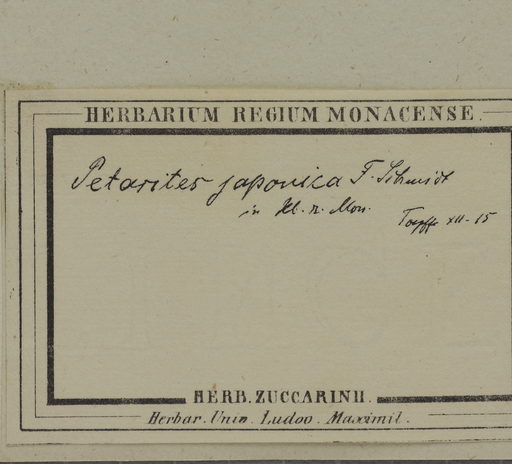 HERBARIUM REGIUM MONACENSE.
Petasites japonica F. Schmidt
in Hb. r. Mon.
Toepffer XII-15
HERB. ZUCCARINII.
Herbar. Univ. Ludov. Maximil.